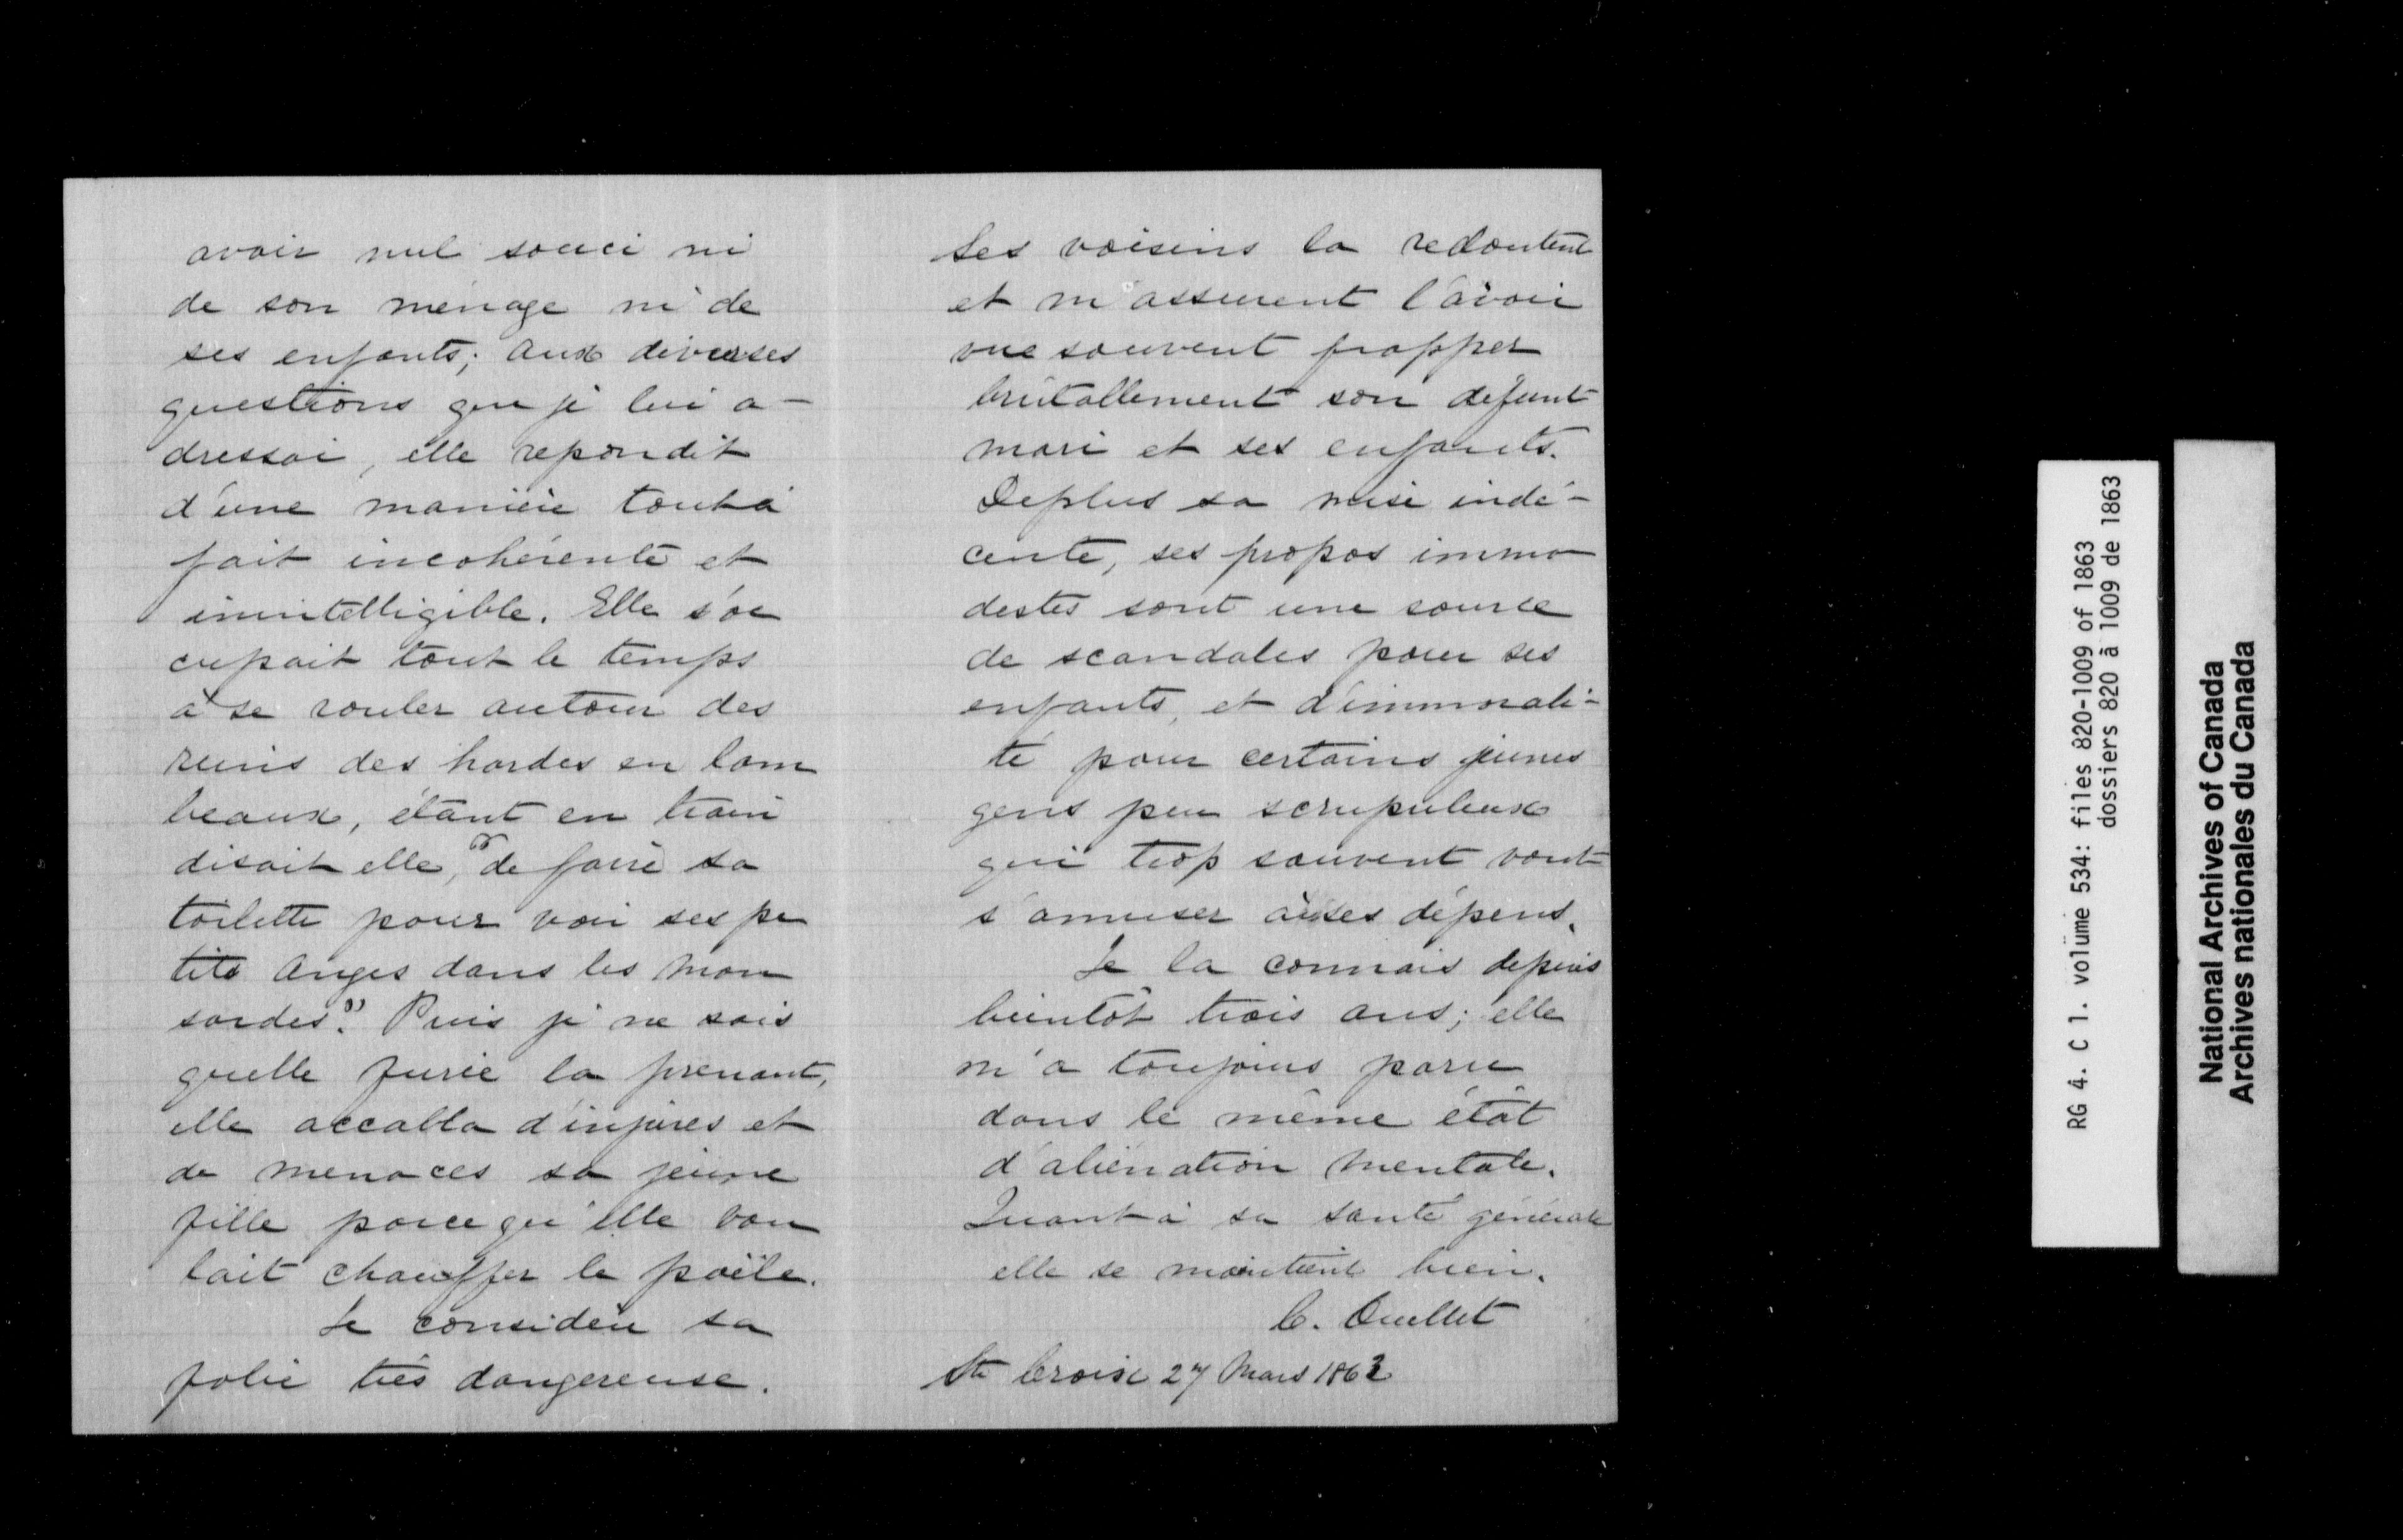 avoir nul souci ni
de son ménage ni de
ses enfants; aux diverses
questions que je lui a-
dressai, elle repondit
d'une manière tout à
fait incohérente et
inintelligible. Elle s'oc
cupait tout le temps
à se rouler autour des
reins des hardes en lam
beaux, étant en train
disait elle, "de faire sa
toilette pour voir ses pe
tits anges dans les man
sardes." Puis je ne sais
quelle furie la prenant,
elle accabla d'injures et
de menaces sa jeune
fille parce qu'elle vou
lait chauffer le poële.
Je considère sa
folie très dangereuse.
Les voisins la redoutent
et m'assurent l'avoir
vue souvent frapper
brutallement son défunt
mari et ses enfants.
Deplus sa mise indé-
cente, ses propos immo
destes sont une source
de scandales pour ses
enfants, et d'immorali-
té pour certains jeunes
gens peu scrupuleux
qui trop souvent vont
s'amuser à ses dépens.
Je la connais depuis
bientôt trois ans; elle
m'a toujours paru
dans le même état
d'aliénation mentale.
Quant à sa santé générale
elle se maintient bien.
C. Ouellet
Ste Croix 27 Mars 1863
RG 4. C 1. volume 534: files 820-1009 of 1863
dossiers 820 à 1009 de 1863
National Archives of Canada
Archives nationales du Canada